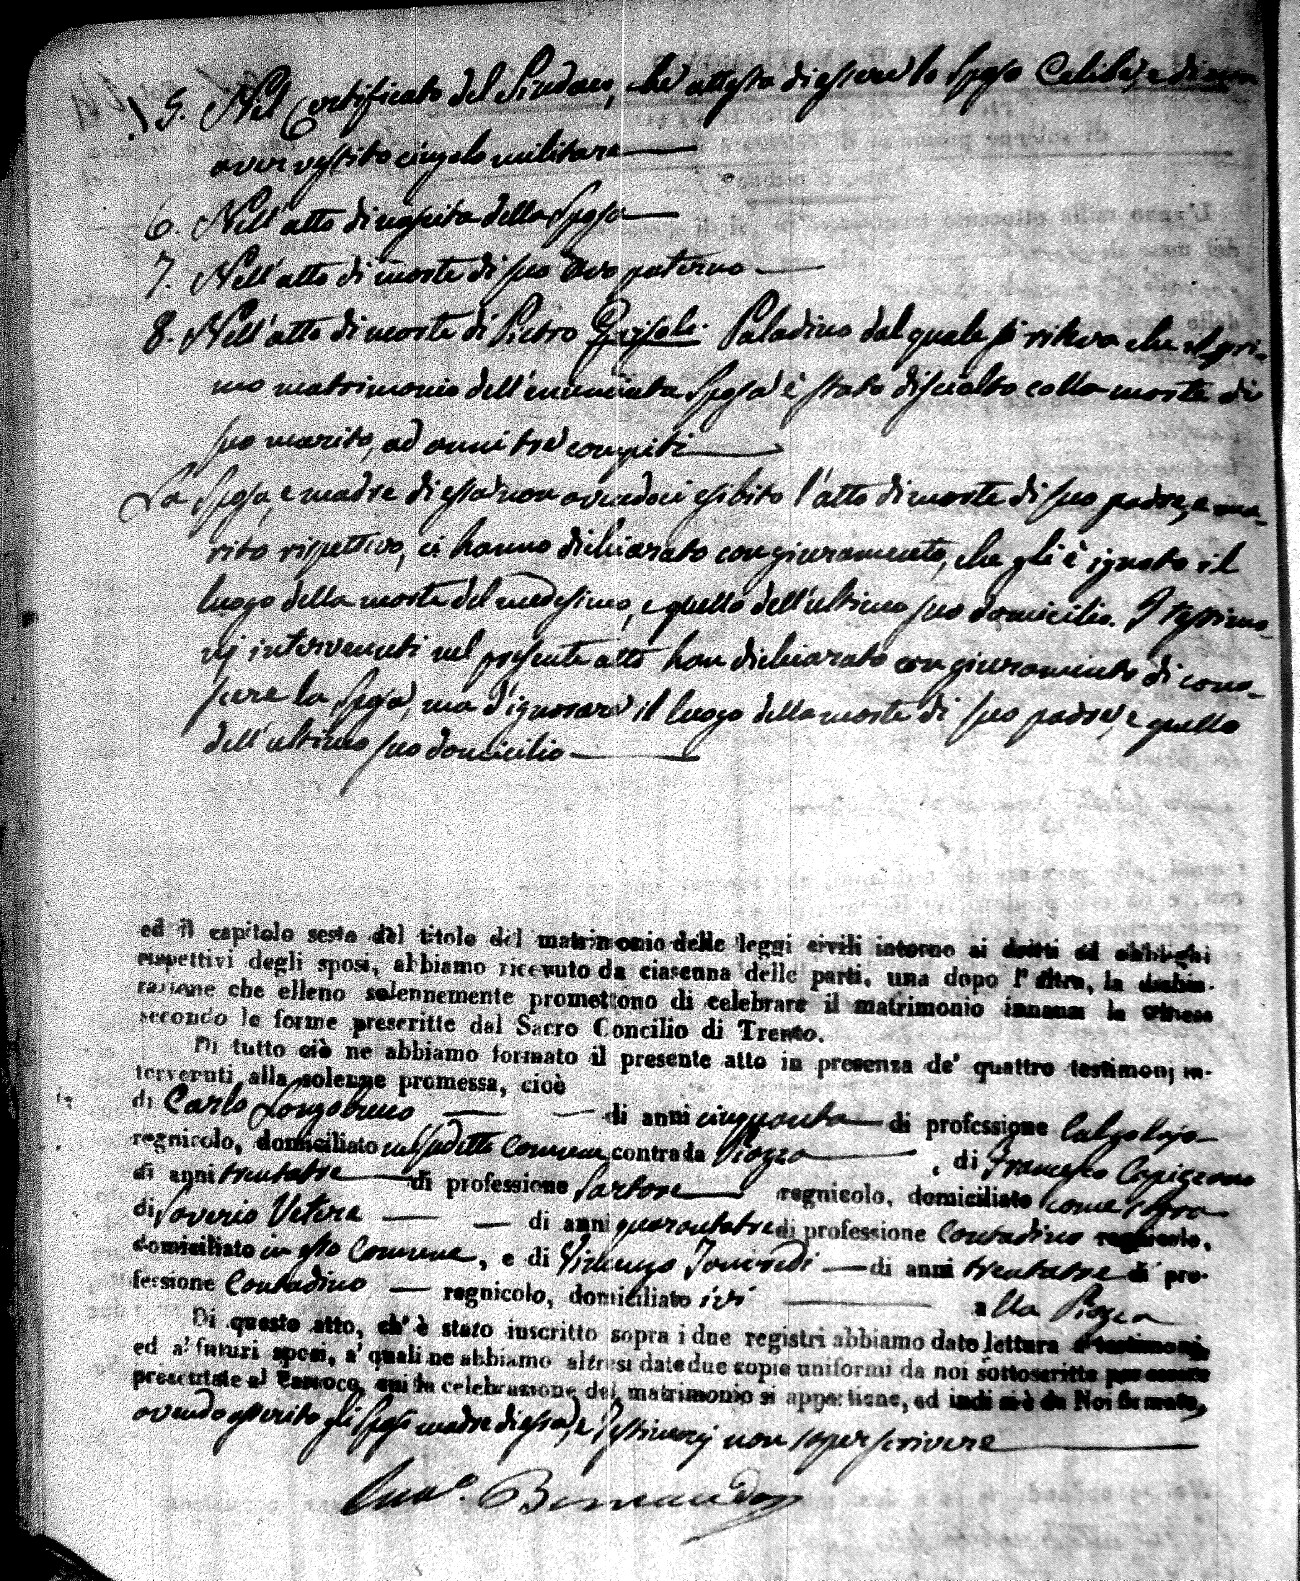 5. Nel Certificato del Sindaco, che attesta di essere lo Sposo Celibe, e di non
aver vestito cingolo militare
6. Nell'atto di nascita della Sposa
7. Nell'atto di morte di suo Avo paterno
8. Nell'atto di morte di Pietro Paladino dal quale si rileva che il pri-
mo matrimonio dell'enunciata Sposa è stato disciolto colla morte di
suo marito, ad anni tre compiti
La Sposa, e madre di essa non avendoci esibito l'atto di morte di suo padre, e ma-
rito rispettivo, ci hanno dichiarato con giuramento, che gli è ignoto il
luogo della morte del medesimo, e quello dell'ultimo suo domicilio. I testimo-
nj intervenuti nel presente atto han dichiarato con giuramento di cono-
scere la Sposa, ma d'ignorare il luogo della morte di suo padre, e quello
dell'ultimo suo domicilio
ed il capitolo sesto del titolo del matrimonio delle leggi civili intorno ai dritti ed obblighi
rispettivi degli sposi, abbiamo ricevuto da ciascuna delle parti, una dopo l'altra, la dichia-
razione che elleno solennemente promettono di celebrare il matrimonio innanzi la Chiesa
secondo le forme prescritte dal Sacro Concilio di Trento.
Di tutto ciò ne abbiamo formato il presente atto in presenza de' quattro testimonj in-
tervenuti alla solenne promessa, cioè
di Carlo Longobuco di anni cinquanta di professione Calzolajo
regnicolo, domiciliato nel sudetto Comune contrada Piazza , di Francesco
di anni trentatre di professione Sartore regnicolo, domiciliato come sopra
di Saverio Vetere di anni quarantatre di professione Contadino regnicolo,
domiciliato in gsto Comune, e di Vincenzo di anni trentatre di pro-
fessione Contadino regnicolo, domiciliato ivi alla Piazza
Di questo atto, ch'è stato inscritto sopra i due registri abbiamo dato lettura a' testimonj,
ed a' futuri sposi, a' quali ne abbiamo altresì date due copie uniformi da noi sottoscritte per essere
presentate al Parroco, cui la celebrazione del matrimonio si appartiene, ed indi si è da Noi firmato,
avendo asserito gli Sposi madre di essa, e Testimonj non saper scrivere